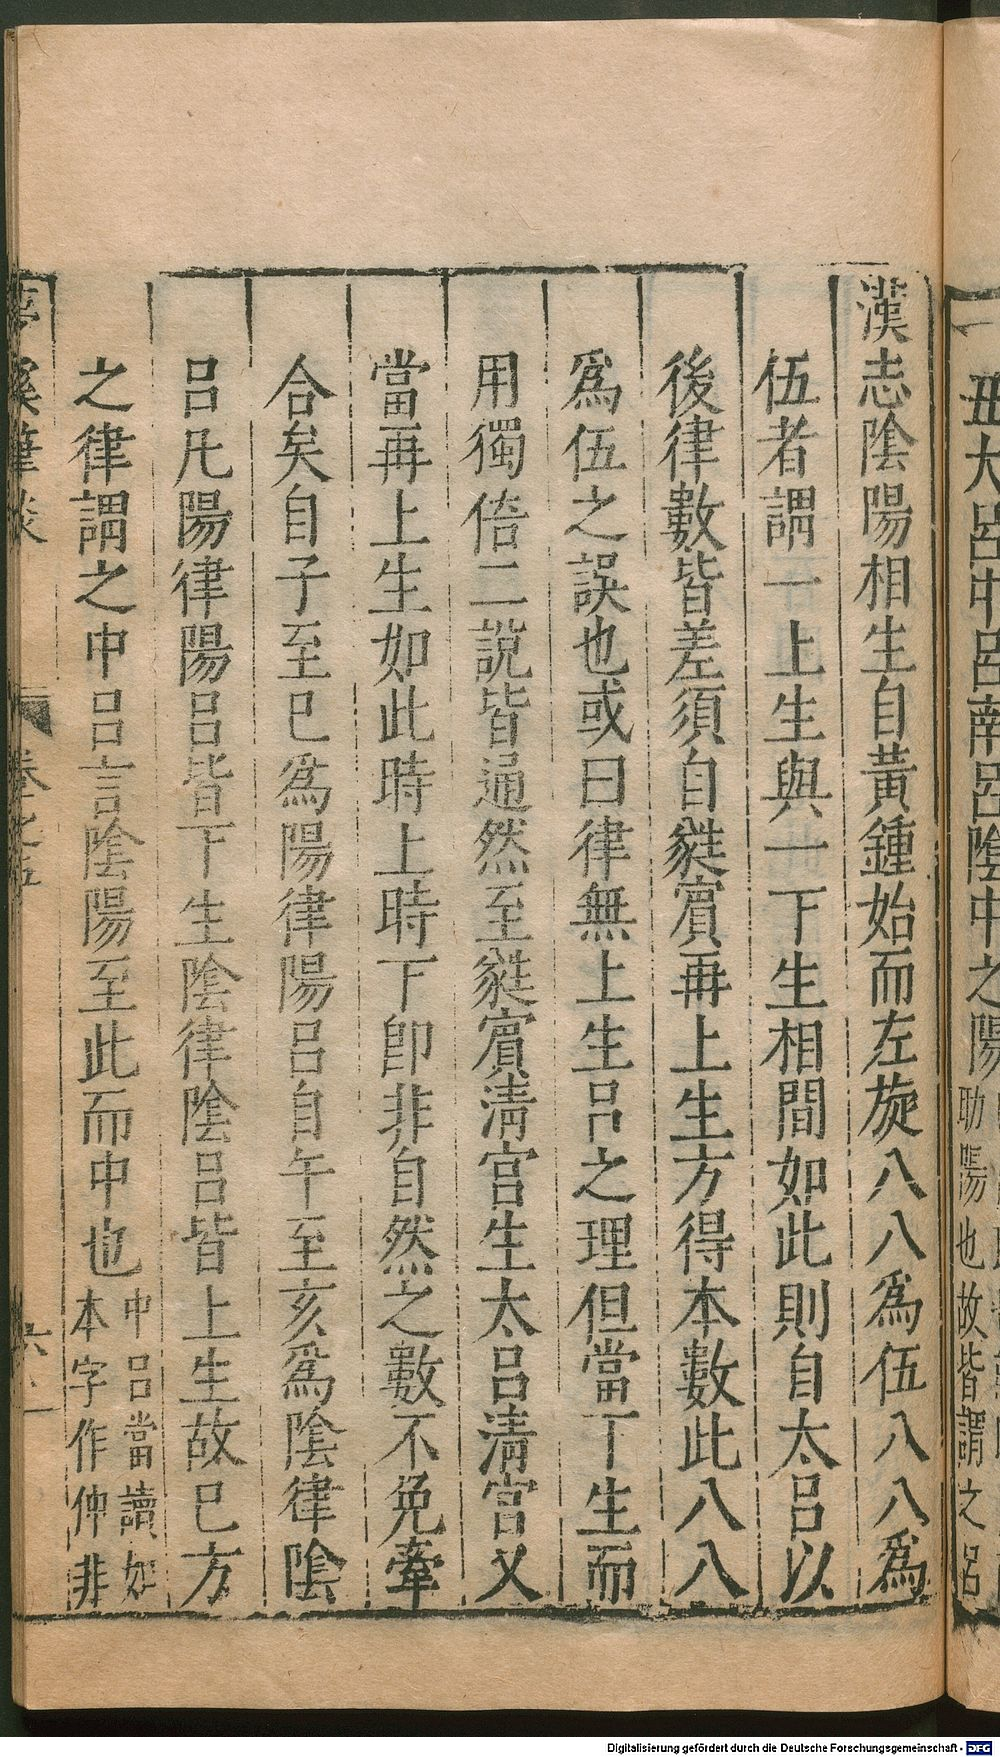 丑大呂中呂南呂陰中之陽
助陽也故皆謂之呂
漢志陰陽相生自黃鍾始而左旋八八爲伍八八爲
伍者謂一上生與一下生相間如此則自太呂以
後律數皆差須自蕤賓再上生方得本數此八八
爲伍之誤也或曰律無上生呂之理但當下生而
用獨倍二說皆通然至蕤賓清宮生太呂清宮又
當再上生如此時上時下卽非自然之數不免牽
合矣自子至巳爲陽律陽呂自午至亥爲陰律陰
呂凡陽律陽呂皆下生陰律陰呂皆上生故巳方
之律謂之中呂言陰陽至此而中也
中呂當讀如
本字作仲非
夢溪筆談
卷之五
六
Digitalisierung gefördert durch die Deutsche Forschungsgemeinschaft - DFG